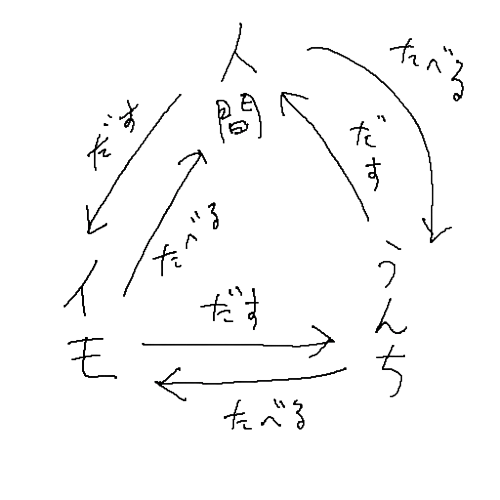 人間
たべる
だす
だす
たべる
イモ
うんち
だす
たべる